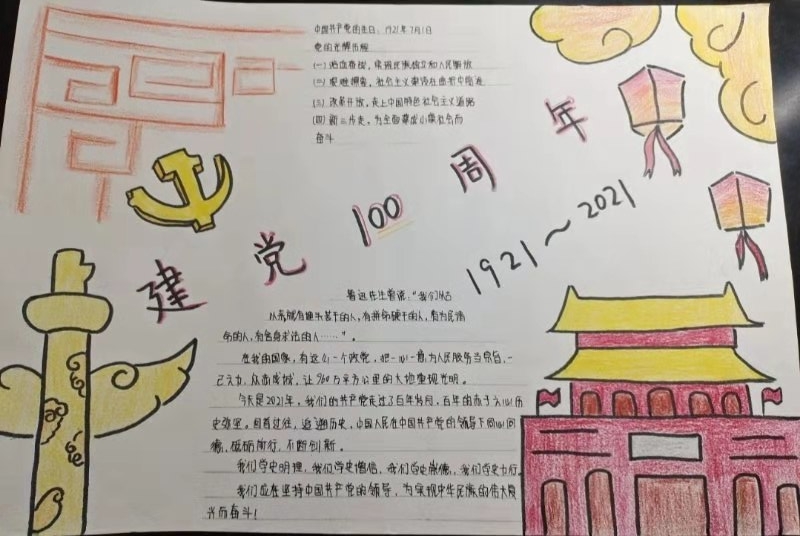 中国共产党的生日：1921年7月1日
党的光辉历程
(一) 浴血奋战，实现民族独立和人民解放
(二) 艰难探索，社会主义事业在曲折中前进
(三) 改革开放，走上中国特色社会主义道路
(四) 新三步走，为全面建成小康社会而
奋斗
建党100周年
1921～2021
鲁迅先生曾说："我们从古
以来就有埋头苦干的人，有拼命硬干的人，有为民请
命的人，有舍身求法的人……"。
在我的国家，有这么一个政党，把一心一意为人民服务当宗旨，一
己之力，众志成城，让960万平方公里的大地重现光明。
今天是2021年，我们的共产党走过了百年
史 回首过往，追溯历史，中国人民在中国共产党的领导下同心同
德，砥砺前行，不断创新。
我们学史明理，我们学史增信，我们学史崇德，我们学史力行。
我们应在坚持中国共产党的领导，为实现中华民族的伟大复
兴而奋斗！